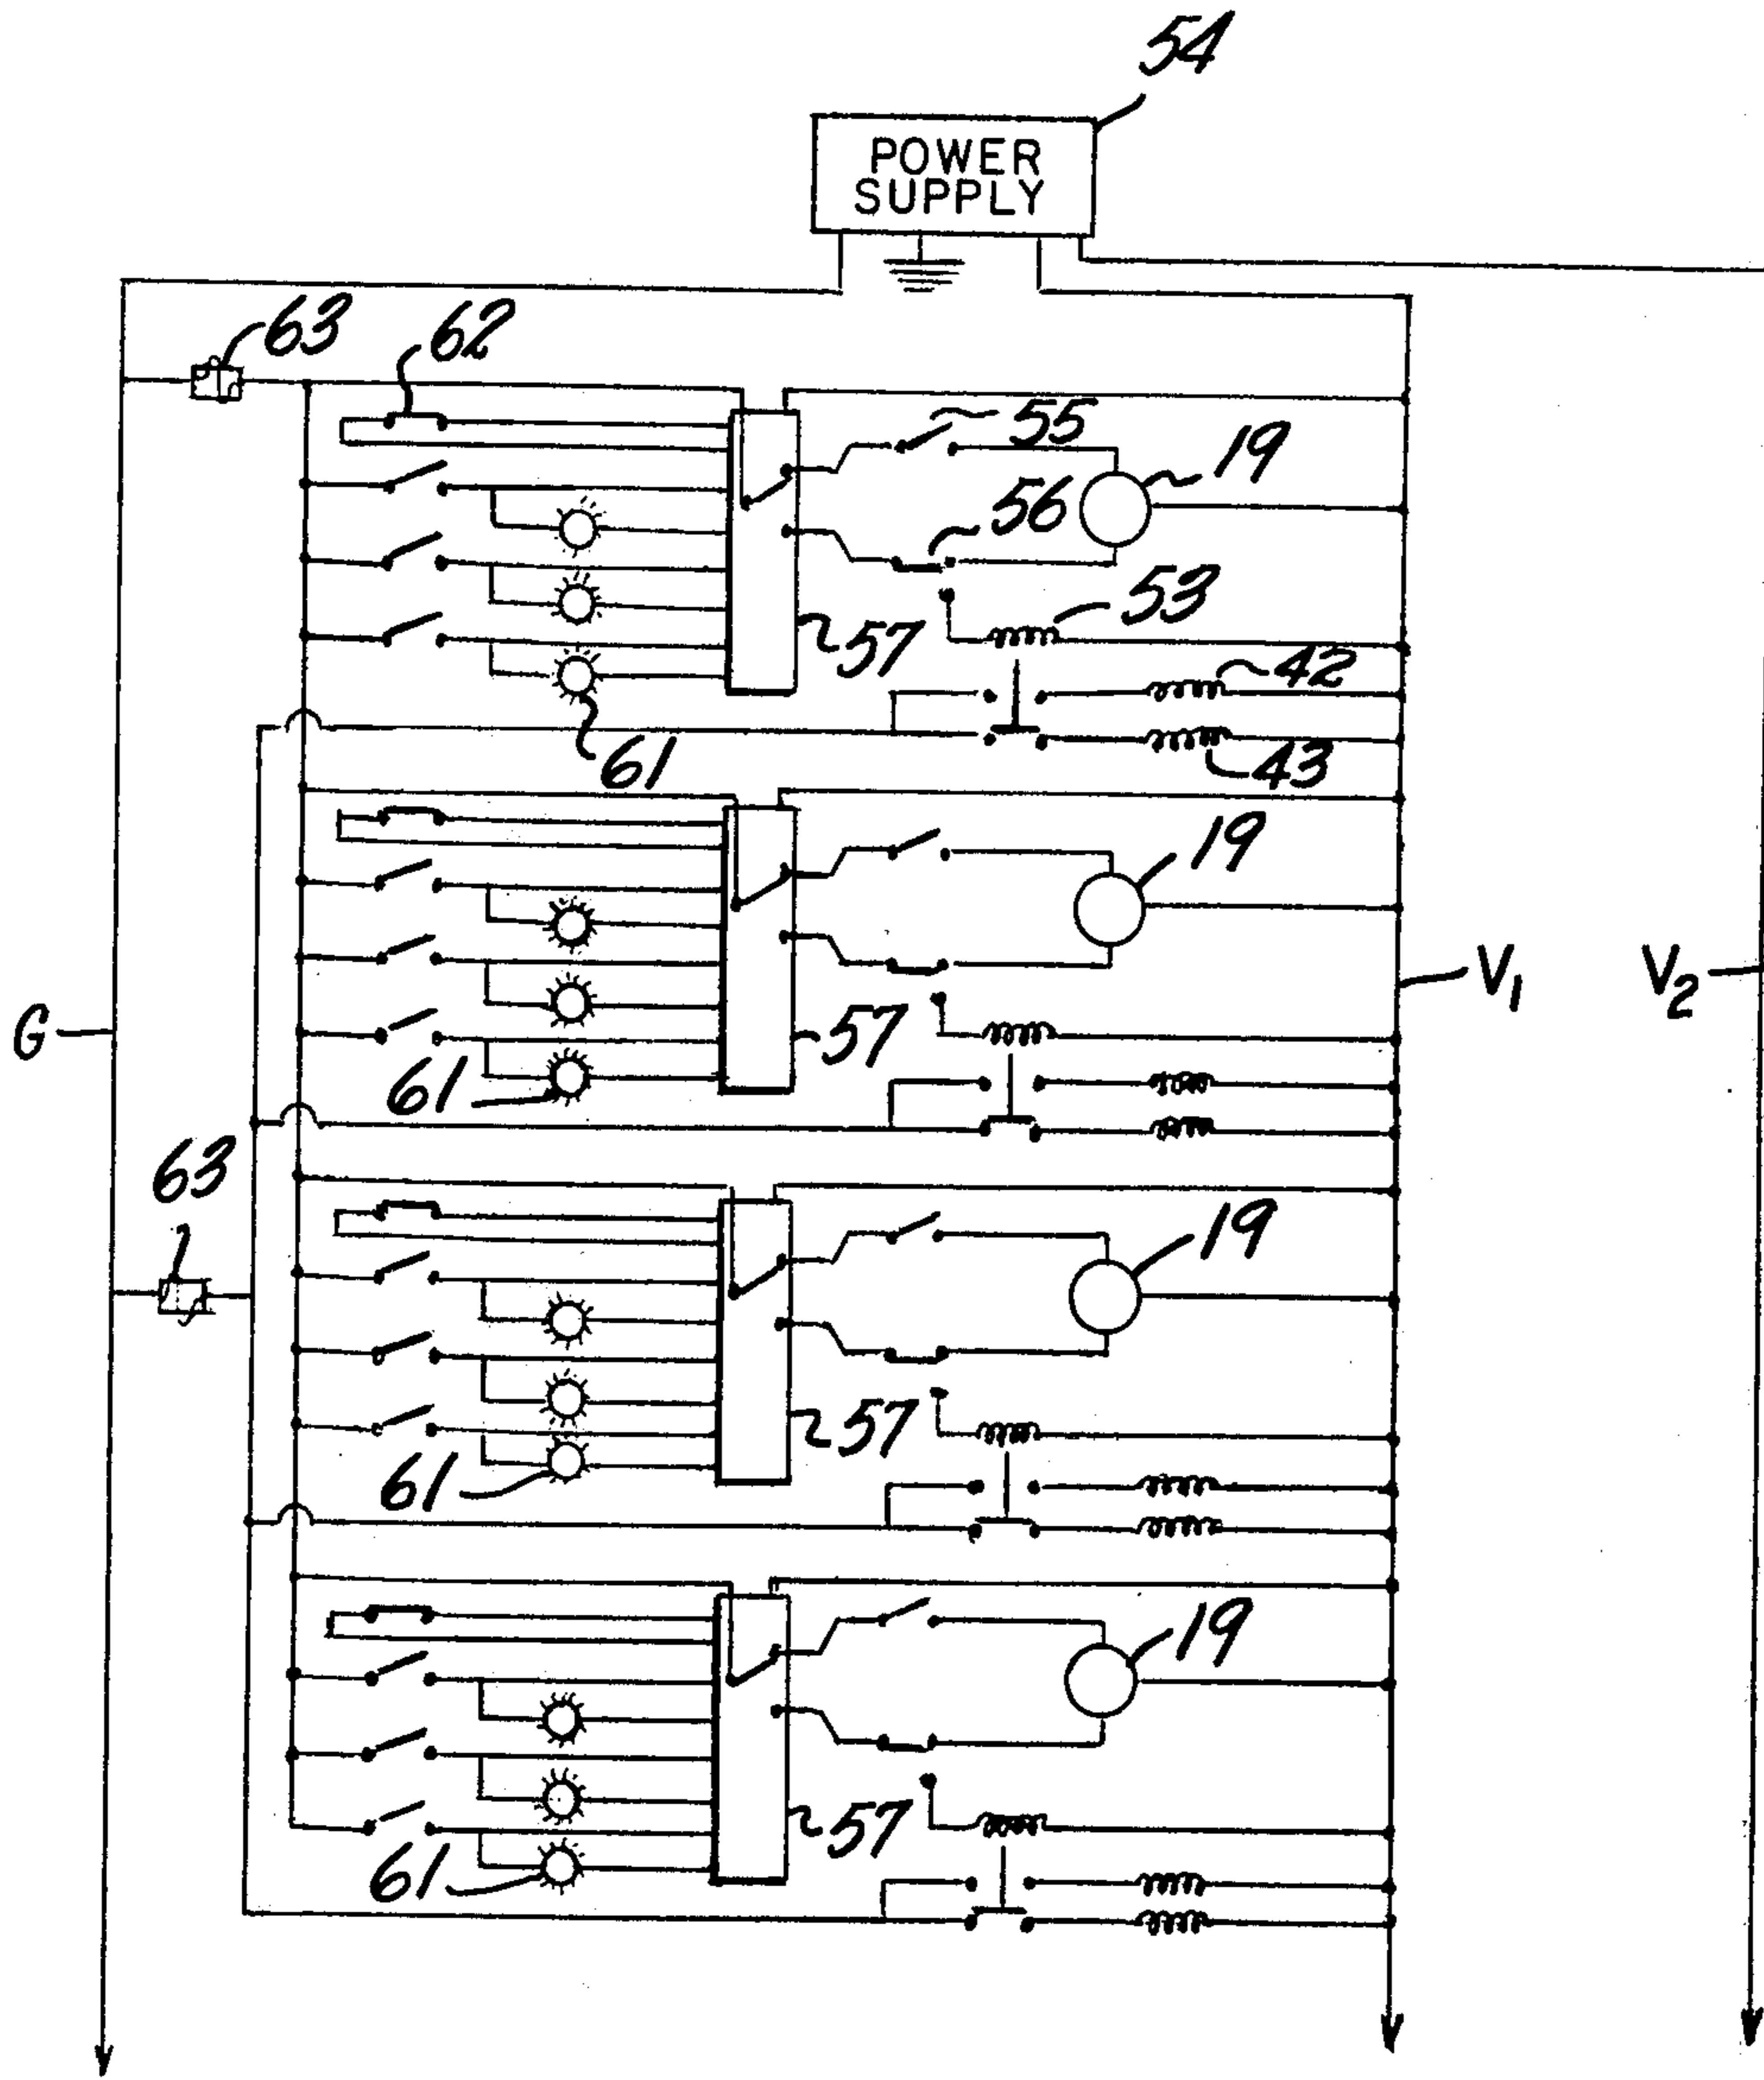 54
POWER
SUPPLY
63
62
55
19
56
53
57
42
61
43
19
G
V1
V2
57
61
63
19
57
61
19
57
61